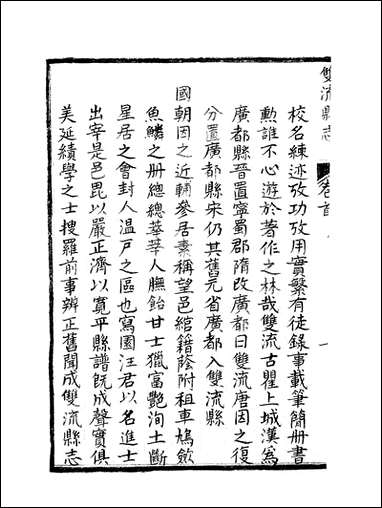 雙流縣志 卷首 一
校名練迹攷功攷用實繁有徒錄事載筆簡册書
勲誰不心遊於著作之林哉雙流古瞿上城漢爲
廣都縣晉置寧蜀郡隋改廣都曰雙流唐因之復
分置廣都縣宋仍其舊元省廣都入雙流縣
國朝因之近輔參居素稱望邑綰籍蔭附租車鳩斂
魚鱗之册總總莘莘人膴飴甘士獵富艷洵土斷
星居之會封人溫戸之區也寫園汪君以名進士
出宰是邑毘以嚴正濟以寬平縣譜旣成聲實俱
美延績學之士搜羅前事辨正舊聞成雙流縣志